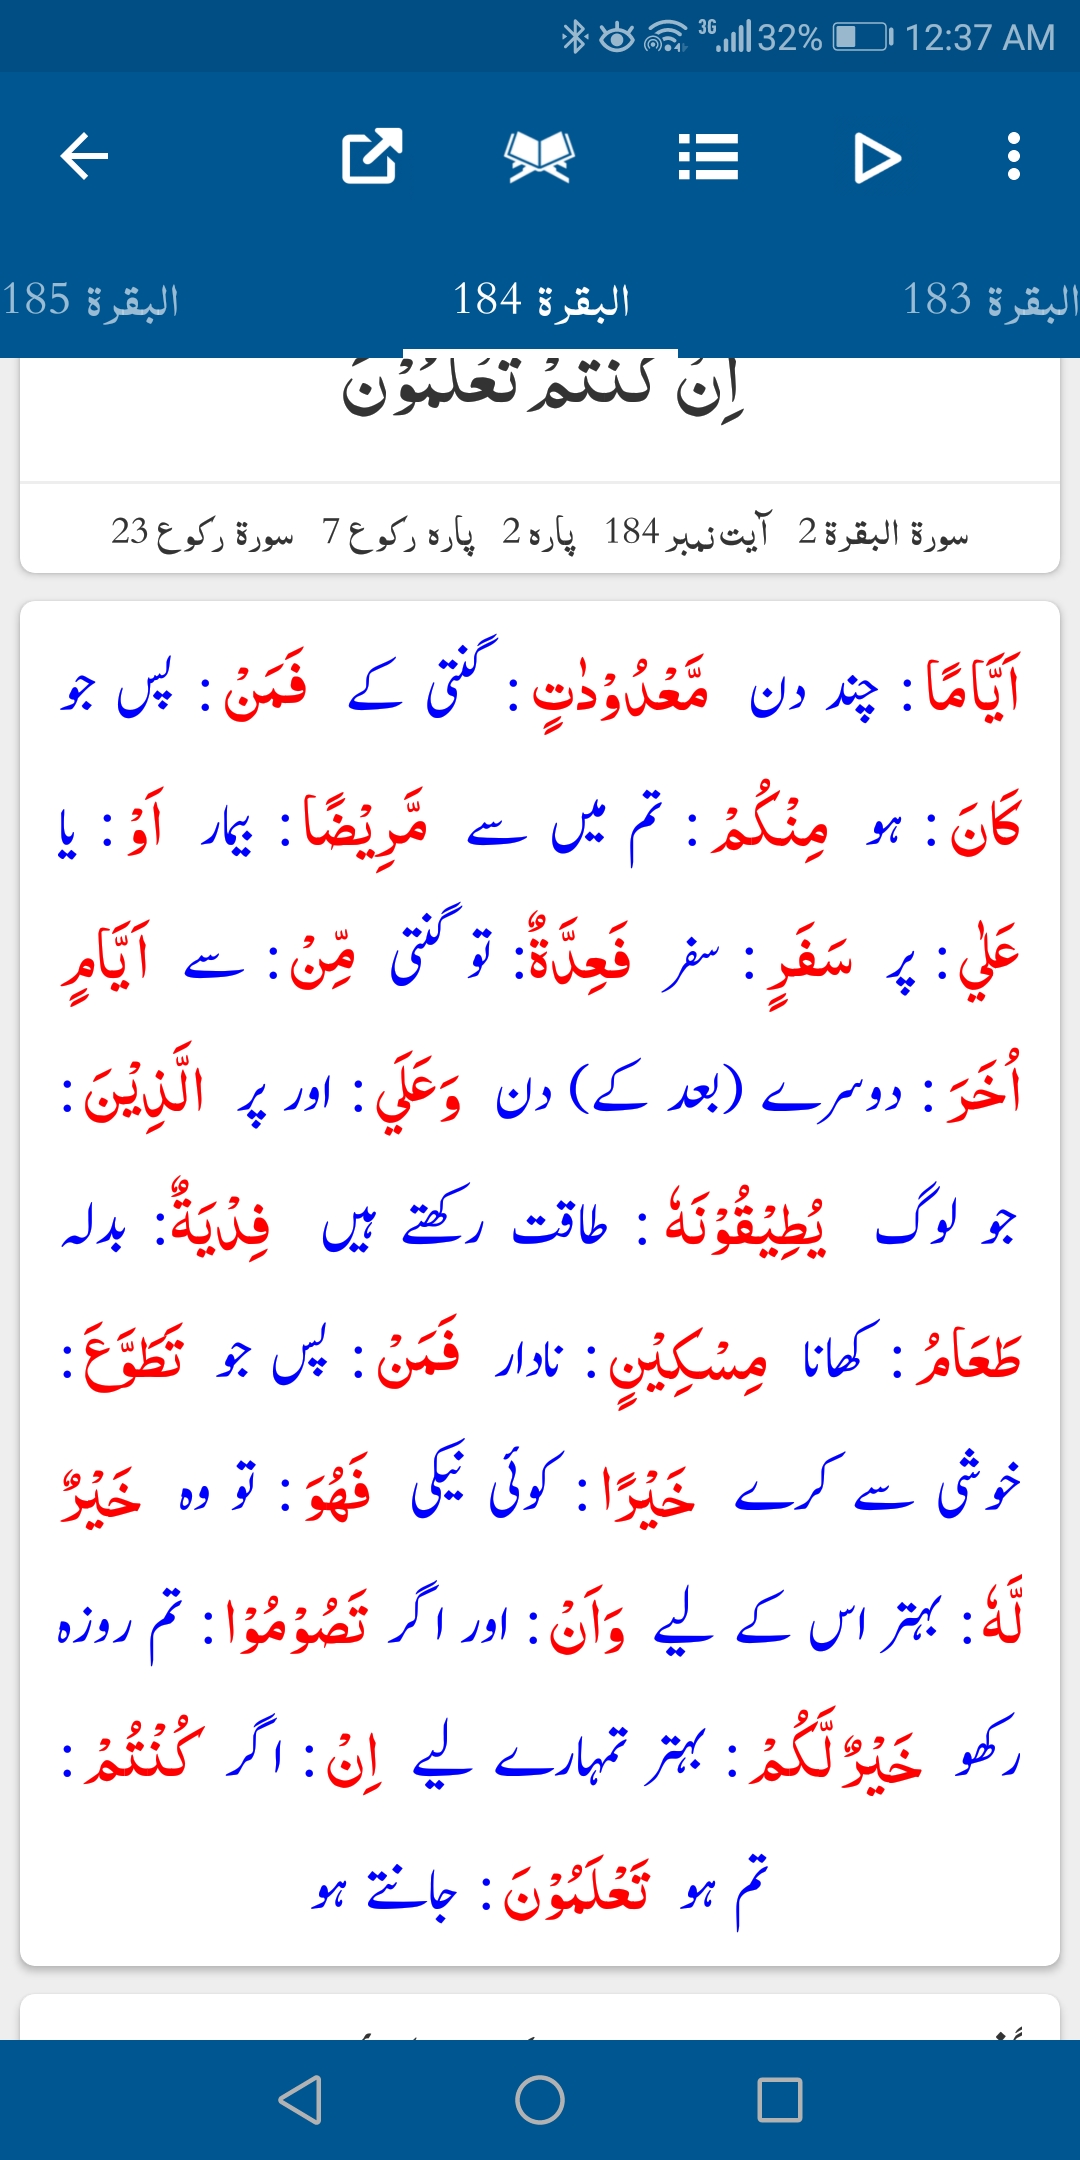 3G 32% 12:37 AM
البقرة 183 البقرة 184 البقرة 185
اِنْ كُنْتُمْ تَعْلَمُوْنَ
سورۃ البقرۃ 2 آیت نمبر 184 پارہ 2 پارہ رکوع 7 سورۃ رکوع 23
اَيَّامًا : چند دن مَّعْدُوْدٰتٍ : گنتی کے فَمَنْ : پس جو
كَانَ : ہو مِنْكُمْ : تم میں سے مَّرِيْضًا : بیمار اَوْ : یا
عَلٰي : پر سَفَرٍ : سفر فَعِدَّةٌ : تو گنتی مِّنْ : سے اَيَّامٍ
اُخَرَ : دوسرے (بعد کے) دن وَعَلَي : اور پر الَّذِيْنَ :
جو لوگ يُطِيْقُوْنَهٗ : طاقت رکھتے ہیں فِدْيَةٌ : بدلہ
طَعَامُ : کھانا مِسْكِيْنٍ : نادار فَمَنْ : پس جو تَطَوَّعَ :
خوشی سے کرے خَيْرًا : کوئی نیکی فَهُوَ : تو وہ خَيْرٌ
لَّهٗ : بہتر اس کے لیے وَاَنْ : اور اگر تَصُوْمُوْا : تم روزہ
رکھو خَيْرٌ لَّكُمْ : بہتر تمہارے لیے اِنْ : اگر كُنْتُمْ :
تم ہو تَعْلَمُوْنَ : جانتے ہو